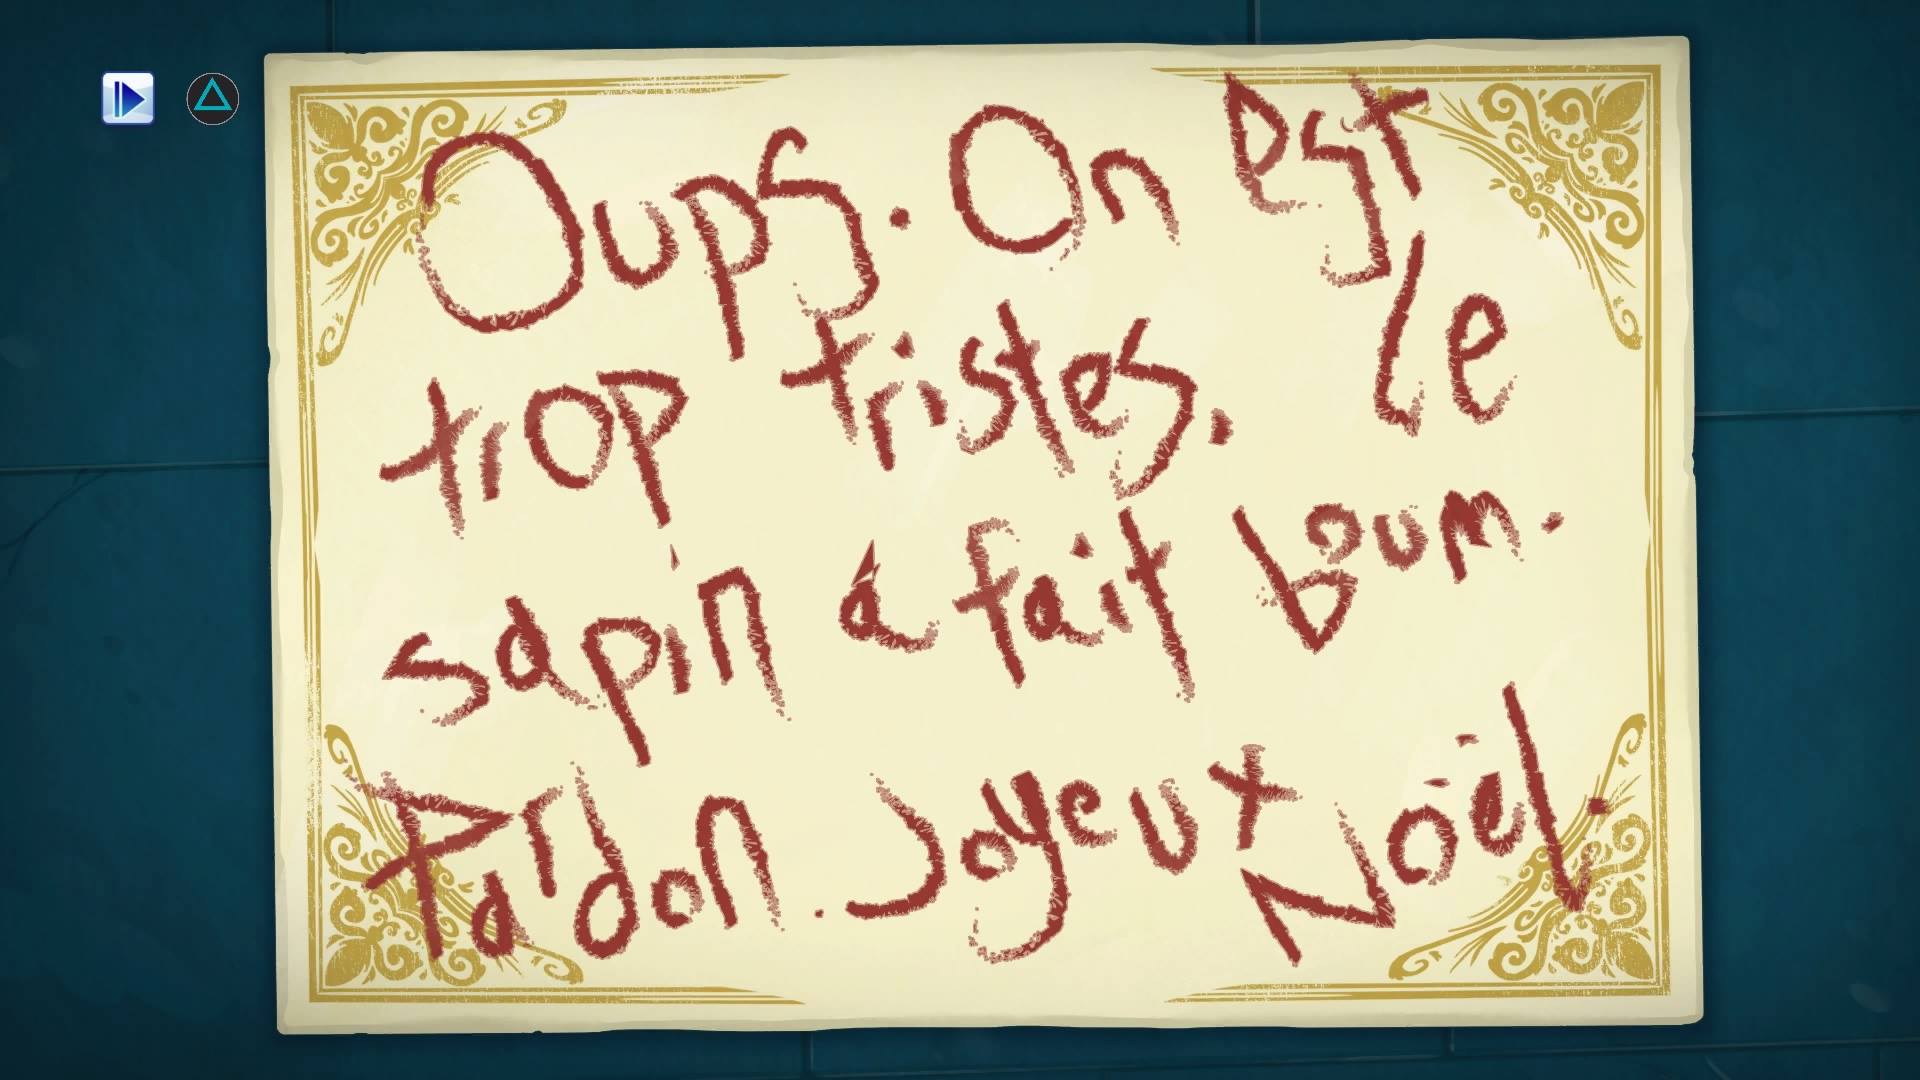 Oups. On est
trop tristes. Le
sapin á fait boum.
Pardon. Joyeux Noël.